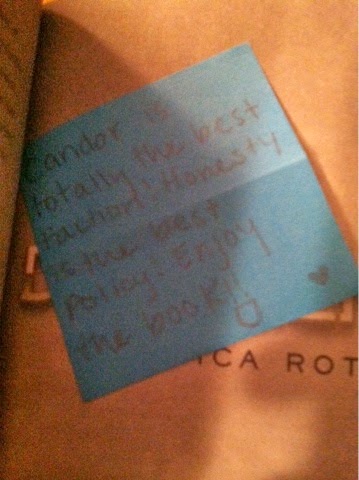 Candor is
totally the best
faction! Honesty
is the best
policy! Enjoy
the book!!
ICA ROT